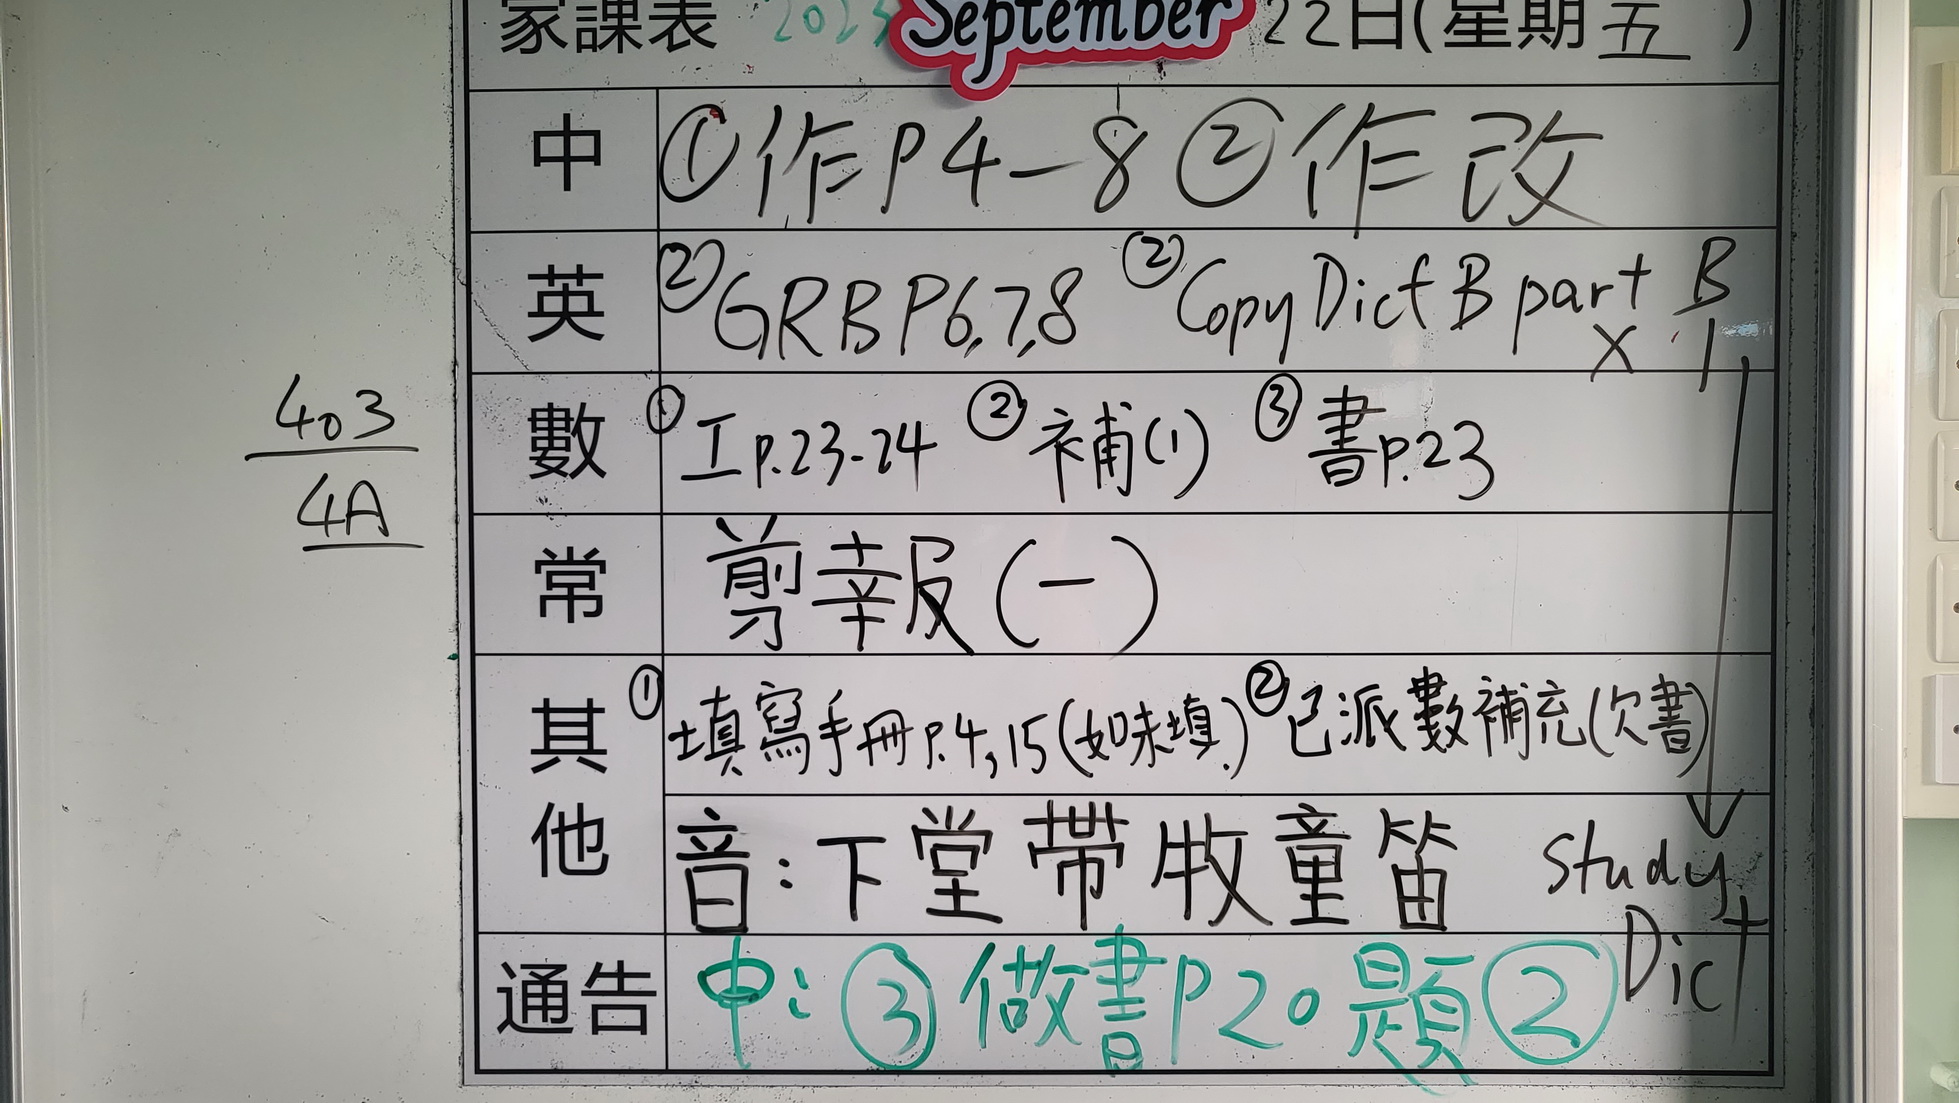 家課表 2023 September 22日(星期五)
中 ①作P4-8 ②作改
英 ②GRB P6,7,8 ②Copy Dict B part B
x 1,
數 ①工p.23-24 ②補(1) ③書p.23
403
4A
常 剪報(一)
其他 ①填寫手冊p.4,15(如味填.) ②已派數補充(欠書)
音:下堂帶牧童笛 study
Dict
通告 中: ③做書P20題②